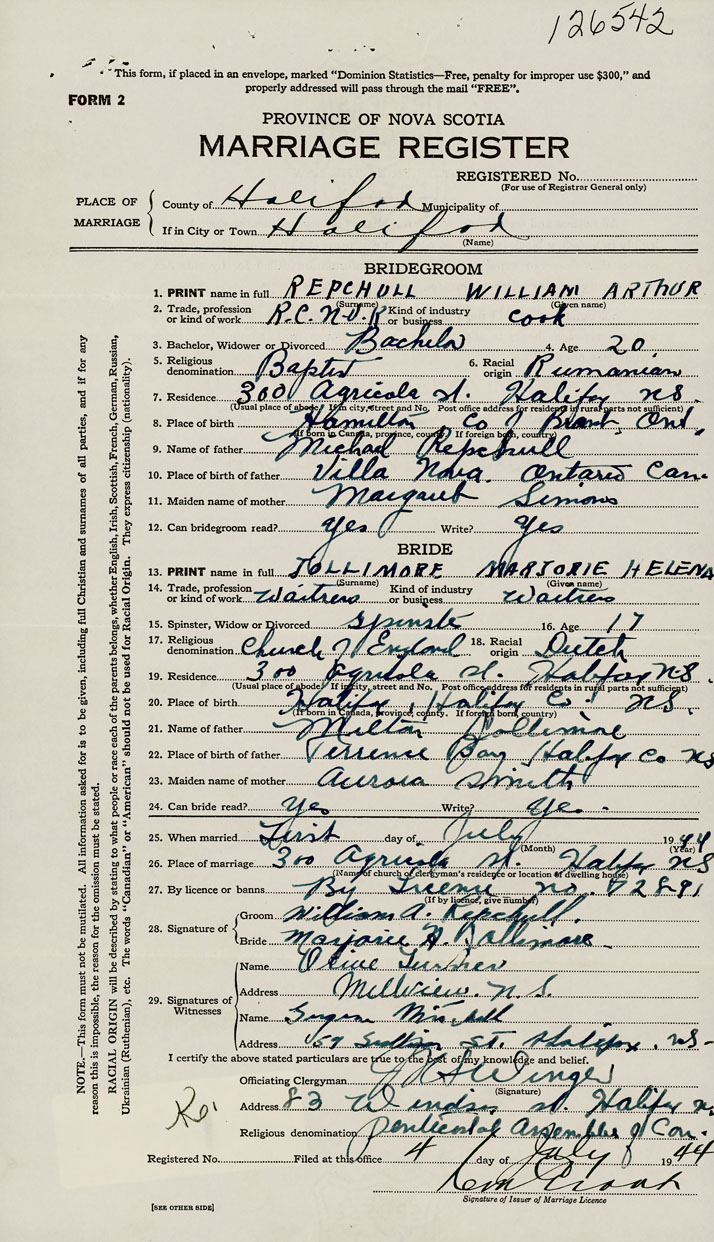 126542
This form, if placed in an envelope, marked "Dominion Statistics—Free, penalty for improper use $300," and
properly addressed will pass through the mail "FREE".
FORM 2
PROVINCE OF NOVA SCOTIA
MARRIAGE REGISTER
REGISTERED No.
(For use of Registrar General only)
PLACE OF MARRIAGE
County of Halifax Municipality of
If in City or Town Halifax
(Name)
BRIDEGROOM
1. PRINT name in full REPCHULL WILLIAM ARTHUR
(Surname) (Given name)
2. Trade, profession or kind of work R.C.N.V.R Kind of industry or business Cook
3. Bachelor, Widower or Divorced Bachelor 4. Age 20
5. Religious denomination Baptist 6. Racial origin Rumanian
7. Residence 300 Agricola st. Halifax NS.
(Usual place of abode. If in city, street and No. Post office address for residents in rural parts not sufficient)
8. Place of birth Hamilton Co of Brant, Ont.
(If born in Canada, province, county. If foreign born, country)
9. Name of father Michael Repchull
10. Place of birth of father Villa Nova. Ontario Can.
11. Maiden name of mother Margaret Simons
12. Can bridegroom read? Yes Write? Yes
BRIDE
13. PRINT name in full JOLLIMORE MARJORIE HELENA
(Surname) (Given name)
14. Trade, profession or kind of work Waitress Kind of industry or business Waitress
15. Spinster, Widow or Divorced Spinster 16. Age 17
17. Religious denomination Church of England 18. Racial origin Dutch
19. Residence 300 Agricola st. Halifax N.S.
(Usual place of abode. If in city, street and No. Post office address for residents in rural parts not sufficient)
20. Place of birth Halifax, Halifax Co. NS.
(If born in Canada, province, county. If foreign born, country)
21. Name of father Milton Jollimore
22. Place of birth of father Terrence Bay Halifax Co NS
23. Maiden name of mother Aurora Smith
24. Can bride read? Yes Write? Yes.
25. When married First day of July 1944
(Month) (Year)
26. Place of marriage 300 Agricola st. Halifax NS
(Name of church or clergyman's residence or location of dwelling house)
27. By licence or banns By License no. 72891
(If by licence, give number)
28. Signature of
Groom William A. Repchull.
Bride Marjorie H. Jollimore
29. Signatures of Witnesses
Name Olive Turner
Address Millview. N.S.
Name
Address St. Halifax. NS-
I certify the above stated particulars are true to the best of my knowledge and belief.
Officiating Clergyman
(Signature)
Address 83 Windsor st. Halifax
Religious denomination Pentecostal Assemblies of Can.
Registered No. Filed at this office 4 day of July 1944
Signature of Issuer of Marriage Licence
[SEE OTHER SIDE]
NOTE.—This form must not be mutilated. All information asked for is to be given, including full Christian and surnames of all parties, and if for any
reason this is impossible, the reason for the omission must be stated.
RACIAL ORIGIN will be described by stating to what people or race each of the parents belongs, whether English, Irish, Scottish, French, German, Russian,
Ukrainian (Ruthenian), etc. The words "Canadian" or "American" should not be used for Racial Origin. They express citizenship (nationality).